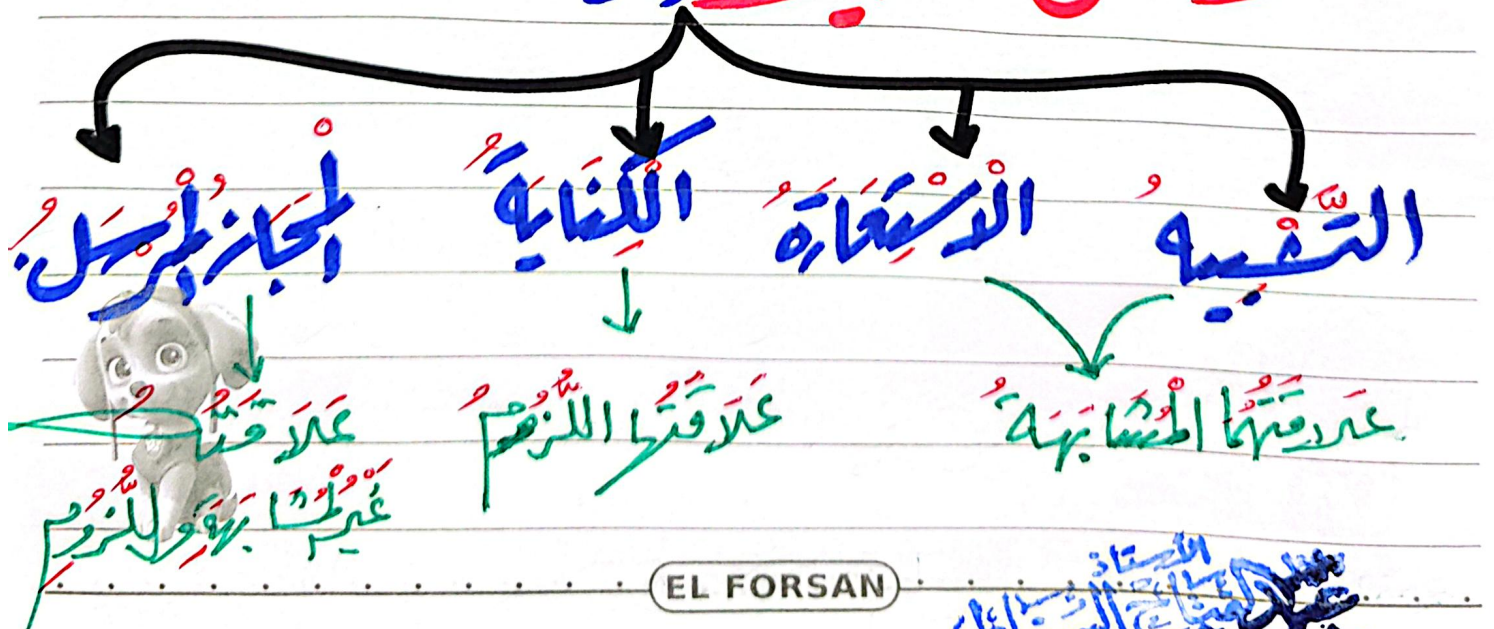 التَّشْبِيهُ
الْاسْتِعَارَةُ
الْكِنَايَةُ
الْمَجَازُ الْمُرْسَلُ
عَلاقَتُهُمَا الْمُشَابَهَةُ
عَلَاقَتُهَا اللُّزُومُ
عَلَاقَتُهُ
غَيْرُ الْمُشَابَهَةِ وَاللُّزُومِ
EL FORSAN
الأستاذ